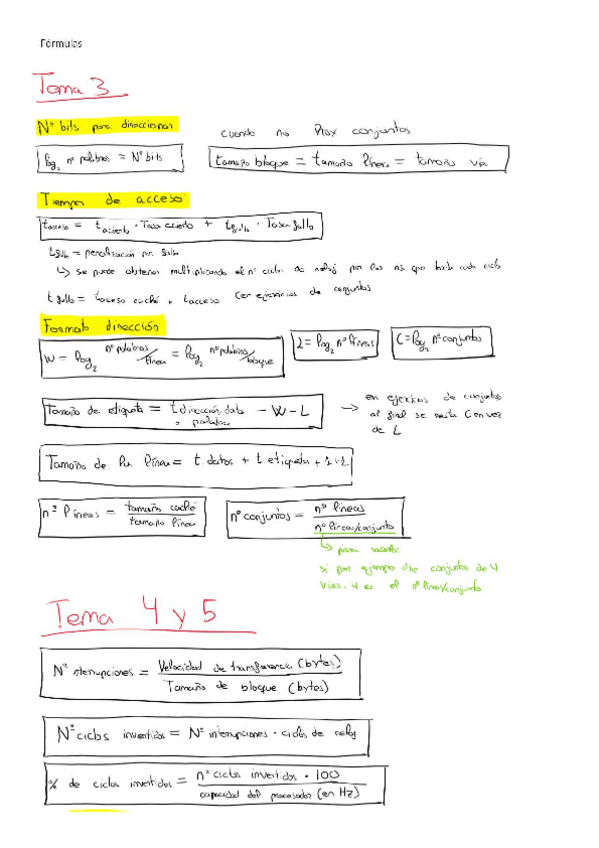 Fórmulas
Tema 3
Nº bits para direccionar
log₂ nº palabras = Nº bits
cuando no hay conjuntos
tamaño bloque = tamaño línea = tamaño vía
Tiempo de acceso
tacceso = tacierto · Tasa acierto + tfallo · Tasa fallo
tfallo = penalización por fallo
↳ se puede obtener multiplicando el nº ciclos de reloj por los ns que tarda cada ciclo
t fallo = tacceso caché + tacceso (en ejercicios de conjuntos
Formato dirección
W = log₂ nº palabras/línea = log₂ nº palabras/bloque
L = log₂ nº líneas
C = log₂ nº conjuntos
Tamaño de etiqueta = t dirección data - W - L
→ en ejercicios de conjuntos al final se resta C en vez de L
Tamaño de la línea = t. datos + t. etiqueta + 1+1
nº líneas = tamaño caché / tamaño línea
nº conjuntos = nº líneas / nº líneas/conjunto
↳ para sacarlo:
si por ejemplo dice conjuntos de 4
vías. 4 es el nº líneas/conjunto
Tema 4 y 5
Nº interrupciones = Velocidad de transferencia (bytes) / Tamaño de bloque (bytes)
Nº ciclos invertidos = Nº interrupciones · ciclos de reloj
% de ciclos invertidos = nº ciclos invertidos · 100 / capacidad del procesador (en Hz)